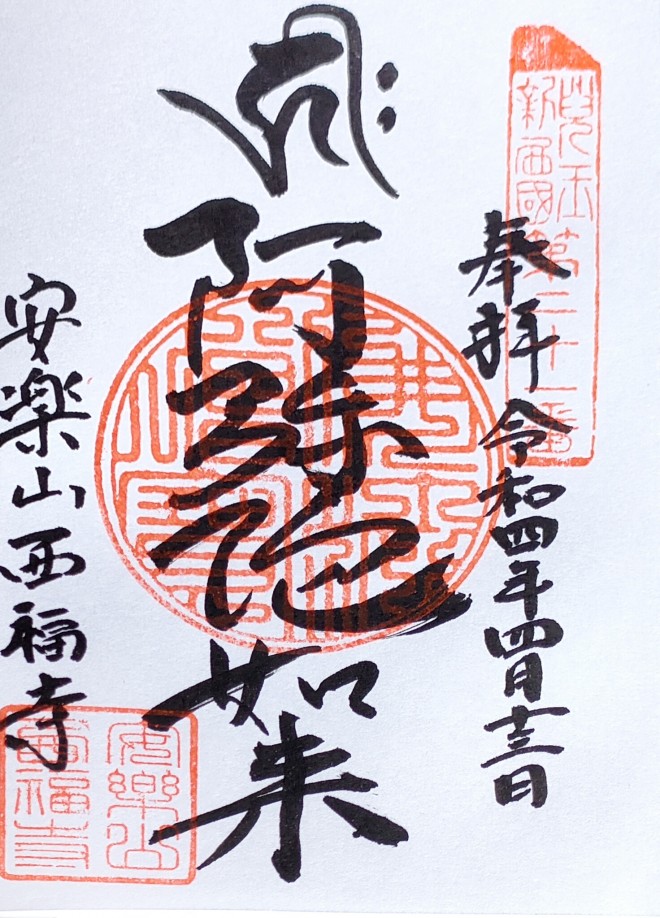 兒玉
新西國
第三十一番
奉拝 令和四年四月十三日
阿弥陀如来
安楽山西福寺
安樂山
西福寺